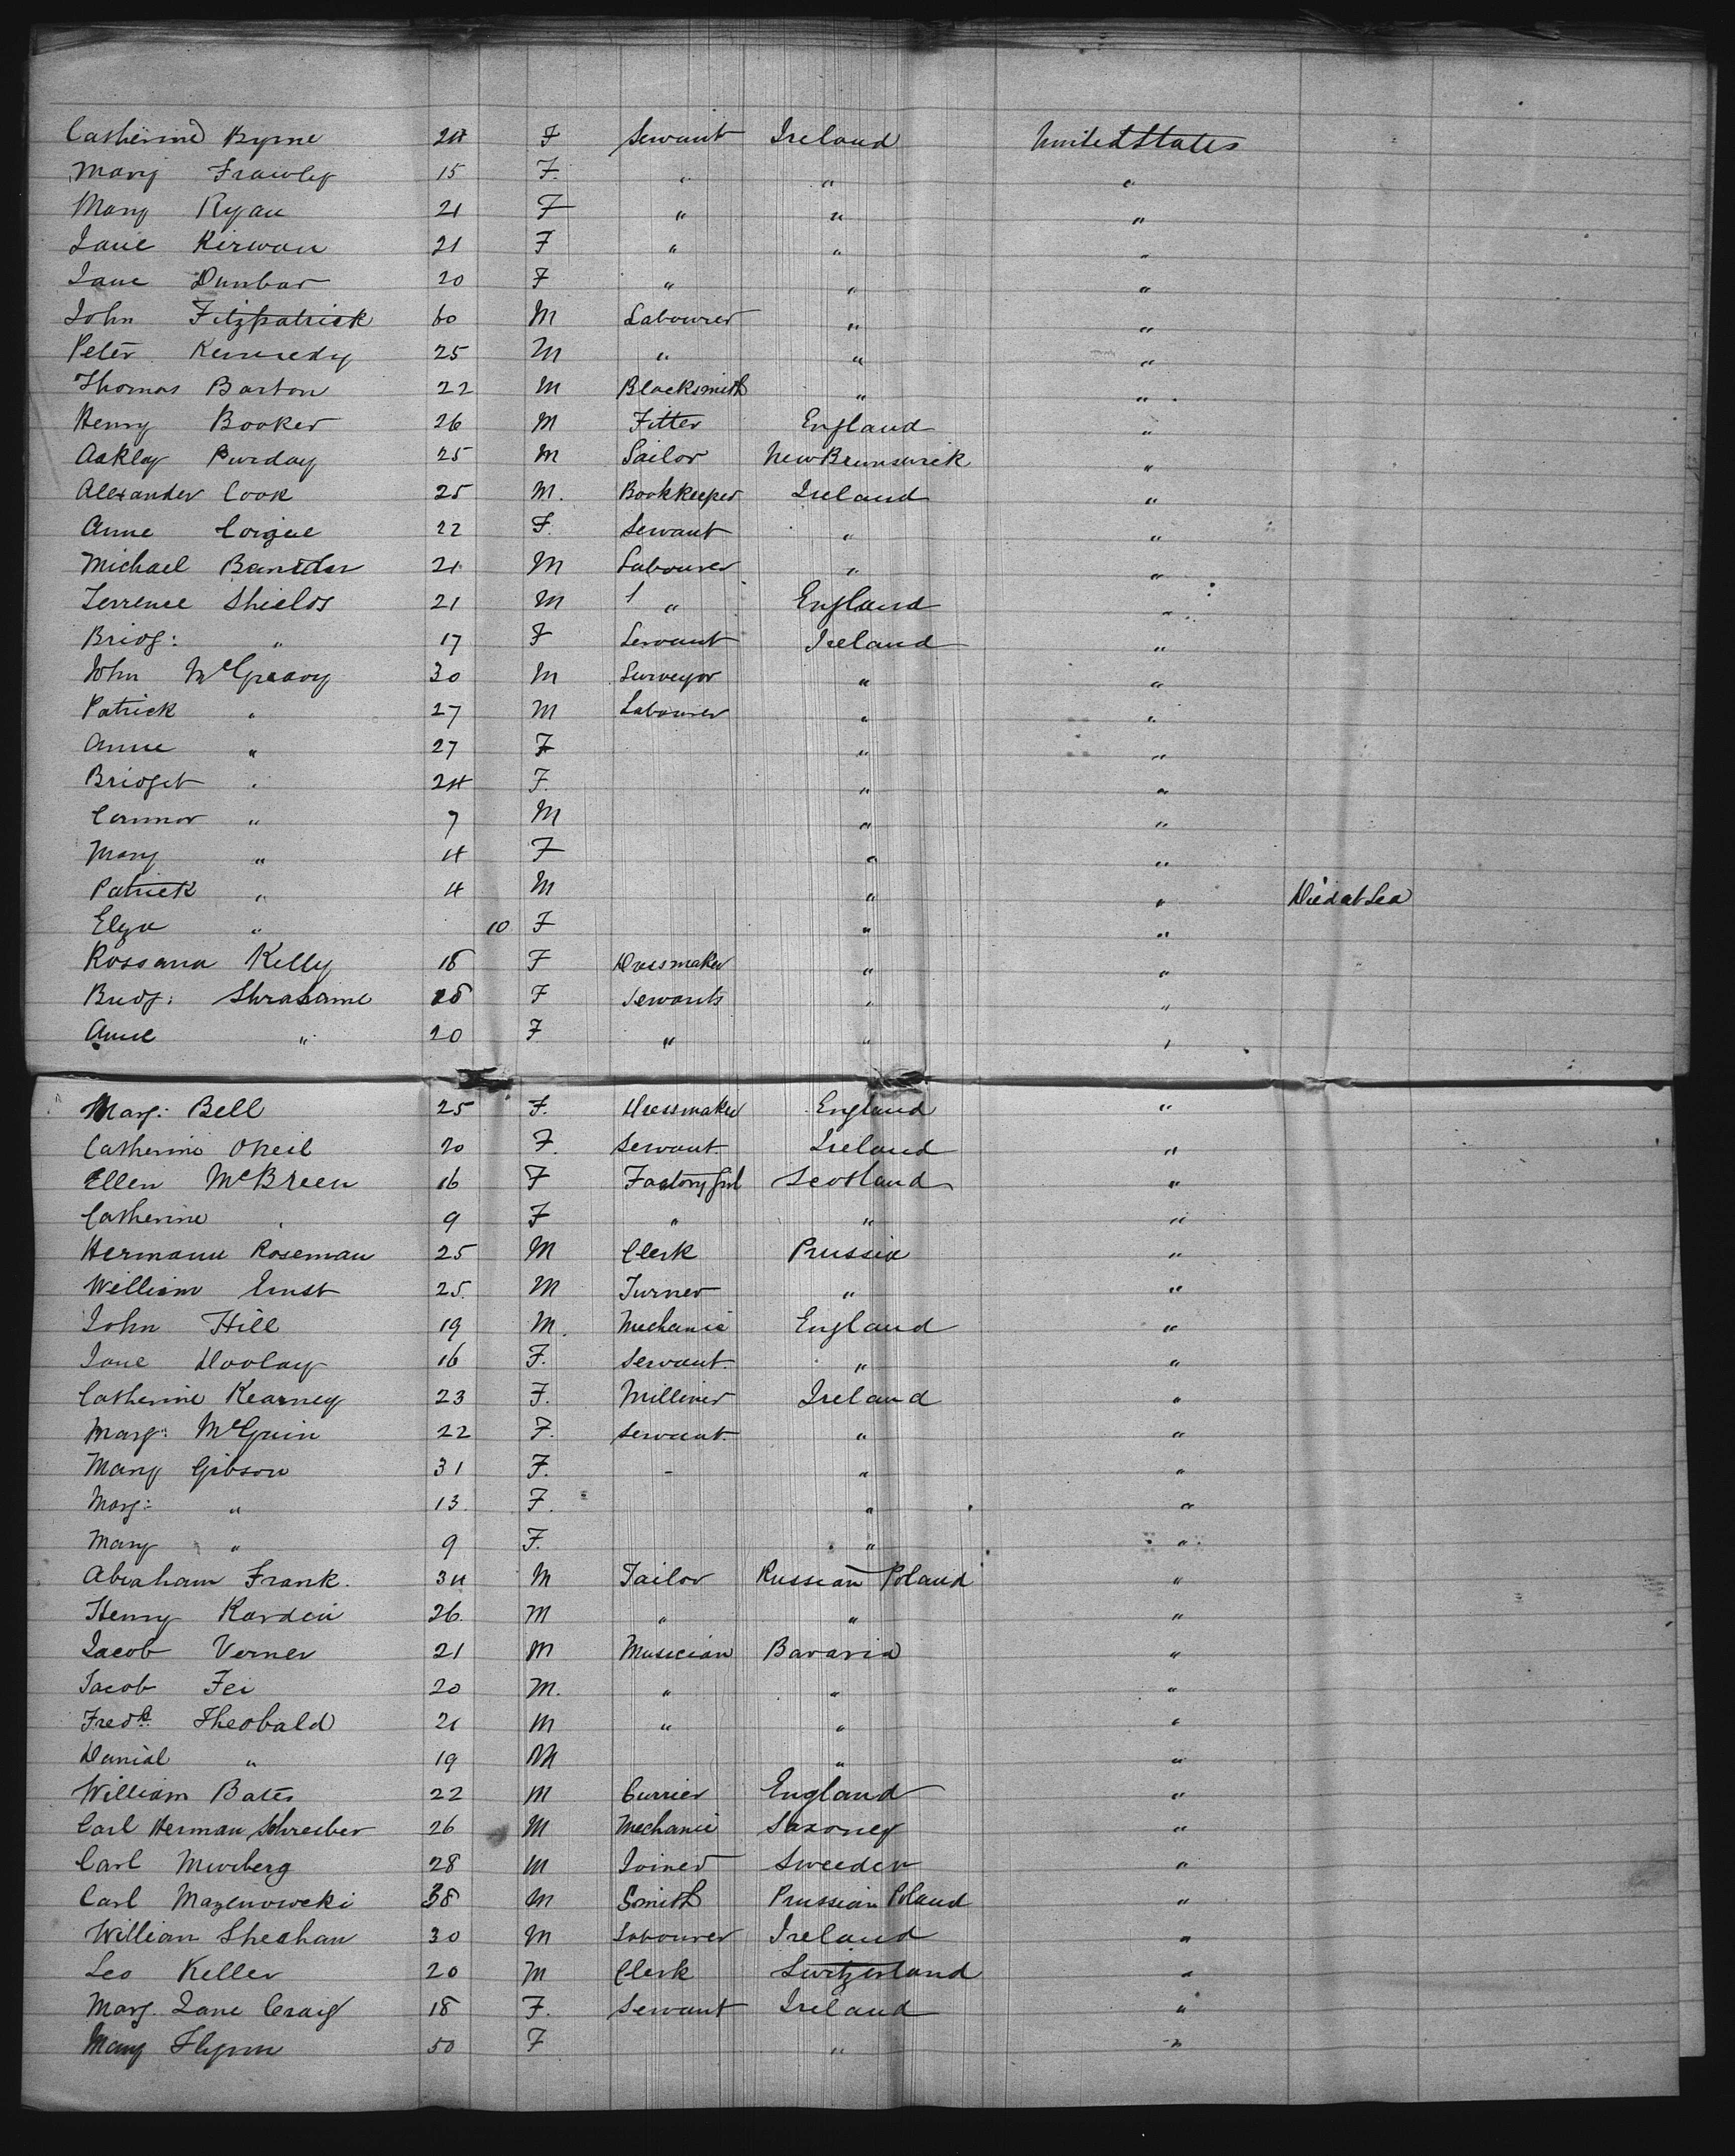 Catherine Byrne 24 F Servant Ireland United States
Mary Frawley 15 F. " " "
Mary Ryan 21 F " " "
Jane Kirwan 21 F " " "
Jane Dunbar 20 F " " "
John Fitzpatrick 60 M Labourer " "
Peter Kennedy 25 M " " "
Thomas Barton 22 M Blacksmith " "
Henry Booker 26 M Fitter England "
Oakley Purday 25 M Sailor New Brunswick "
Alexander Cook 25 M. Bookkeeper Ireland "
Anne 22 F. Servant " "
Michael 21 M Labourer " "
Terrence Shields 21 M " England "
Bridg: " 17 F Servant Ireland "
John McGreavy 30 M Surveyor " "
Patrick " 27 M Labourer " "
Anne " 27 F " "
Bridget " 24 F. " "
Connor " 7 M " "
Mary " 4 F " "
Patrick " 4 M " " Died at Sea
Elza " 10 F " "
Rossana Kelly 18 F Dressmaker " "
Bridg: 28 F Servants " "
Anne " 20 F " " "
Marg: Bell 25 F. Dressmaker England "
Catherine ONeil 20 F. Servant Ireland "
Ellen McBreen 16 F Factory Girl Scotland "
Catherine " 9 F " " "
Hermann Roseman 25 M Clerk Prussia "
William Ernst 25. M Turner " "
John Hill 19 M. Mechanic England "
Jane Doolay 16 F. Servant. " "
Catherine Kearney 23 F. Milliner Ireland "
Marg: McGuin 22 F. Servant. " "
Mary Gibson 31 F. - " "
Marg: " 13. F. " "
Mary " 9 F. " "
Abraham Frank. 34 M Tailor Russian Poland "
Henry Kardin 26. M " " "
Jacob Verner 21 M Musician Bavaria "
Jacob Fei 20 M. " " "
Fredk. Theobald 21 M " " "
Danial " 19 M " "
William Bates 22 M Currier England "
Carl Herman Schreiber 26 M Mechanic Saxoney "
Carl Murberg 28 M Joiner Sweeden "
Carl Mazenowcki 38 M Smith Prussian Poland "
William Sheahan 30 M Labourer Ireland "
Leo Keller 20 M Clerk Switzerland "
Marg. Jane Craig 18 F. Servant Ireland "
Mary Flynn 50 F " "